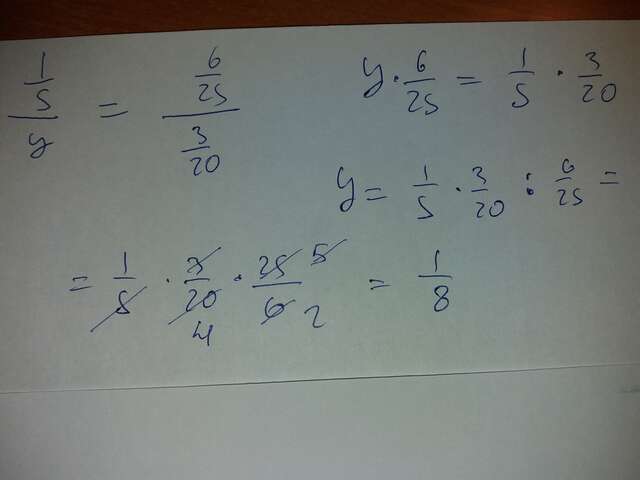 \frac{\frac{1}{5}}{y} = \frac{\frac{6}{25}}{\frac{3}{20}}
y \cdot \frac{6}{25} = \frac{1}{5} \cdot \frac{3}{20}
y = \frac{1}{5} \cdot \frac{3}{20} : \frac{6}{25} =
= \frac{1}{5} \cdot \frac{3}{20} \cdot \frac{25}{6} = \frac{1}{8}
5
4
2